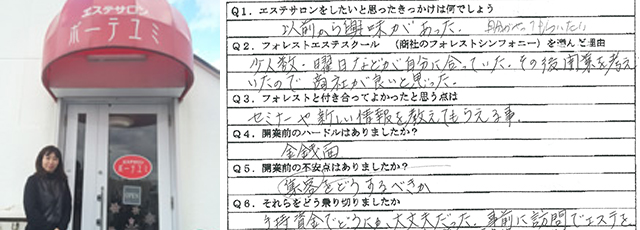 エステサロン
ボーテユミ
エステサロン
ボーテユミ
OPEN
Q1. エステサロンをしたいと思ったきっかけは何でしょう
以前から興味があった。
Q2. フォレストエステスクール （商社のフォレストシンフォニー）を選んだ理由
少人数・曜日などが自分に合っていた。その後開業を考えて
いたので商社が良いと思った。
Q3. フォレストと付き合ってよかったと思う点は
セミナーや新しい情報を教えてもらえる事。
Q4. 開業前のハードルはありましたか？
金銭面
Q5. 開業前の不安点はありましたか？
集客をどうするべきか
Q6. それらをどう乗り切りましたか
手持資金でどうにか大丈夫だった。事前に訪問でエステを